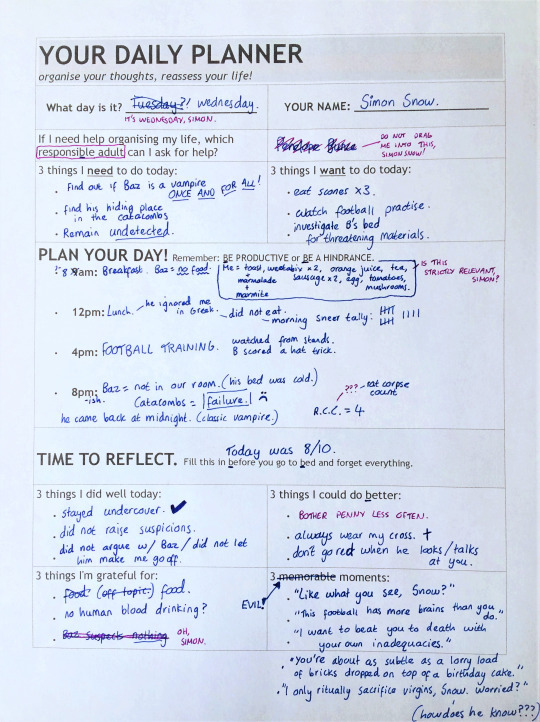 YOUR DAILY PLANNER
organise your thoughts, reassess your life!
What day is it? Tuesday?! wednesday.
IT'S WEDNESDAY, SIMON.
YOUR NAME: Simon Snow.
If I need help organising my life, which
responsible adult can I ask for help?
Penelope Bunce
DO NOT DRAG
ME INTO THIS,
SIMON SNOW!
3 things I need to do today:
• Find out if Baz is a vampire
ONCE AND FOR ALL!
• find his hiding place
in the catacombs
• Remain undetected.
3 things I want to do today:
• eat scones x3.
• watch football practise.
• investigate B's bed
for threatening materials.
PLAN YOUR DAY! Remember: BE PRODUCTIVE or BE A HINDRANCE.
8am: Breakfast. Baz = no food.
Me = toast, weetabix x2, orange juice, tea,
+ marmalade sausage x2, egg, tomatoes,
+ marmite mushrooms.
IS THIS
STRICTLY RELEVANT,
SIMON?
12pm: Lunch. he ignored me
in Greek. did not eat.
morning sneer tally: HHT IIII
HHT
4pm: FOOTBALL TRAINING. watched from stands.
B scored a hat trick.
8pm: Baz = not in our room. (his bed was cold.)
-ish. Catacombs = failure. :(
he came back at midnight. (classic vampire.)
??? rat corpse
count
R.C.C. = 4
Today was 8/10.
TIME TO REFLECT. Fill this in before you go to bed and forget everything.
3 things I did well today:
• stayed undercover. ✔
• did not raise suspicions.
• did not argue w/ Baz / did not let
him make me go off.
3 things I could do better:
• BOTHER PENNY LESS OFTEN.
• always wear my cross. †
• don't go red when he looks/talks
at you.
3 things I'm grateful for:
• food (off topic.) food.
• no human blood drinking?
• Baz suspects nothing
OH,
SIMON.
3 memorable moments:
EVIL!
• "Like what you see, Snow?"
• "This football has more brains than you
do."
• "I want to beat you to death with
your own inadequacies."
• "You're about as subtle as a lorry load
of bricks dropped on top of a birthday cake."
• "I only ritually sacrifice virgins, Snow. Worried?"
(how does he know???)